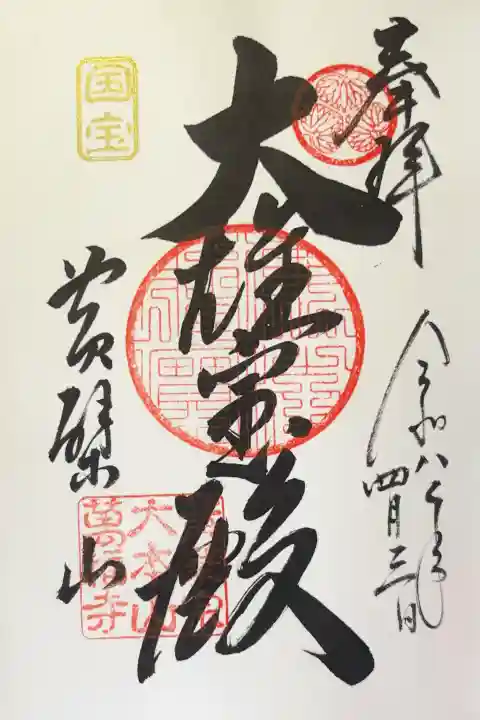 奉拝
令和八年
四月三日
大雄宝殿
国宝
黄檗山
大本山
萬福寺